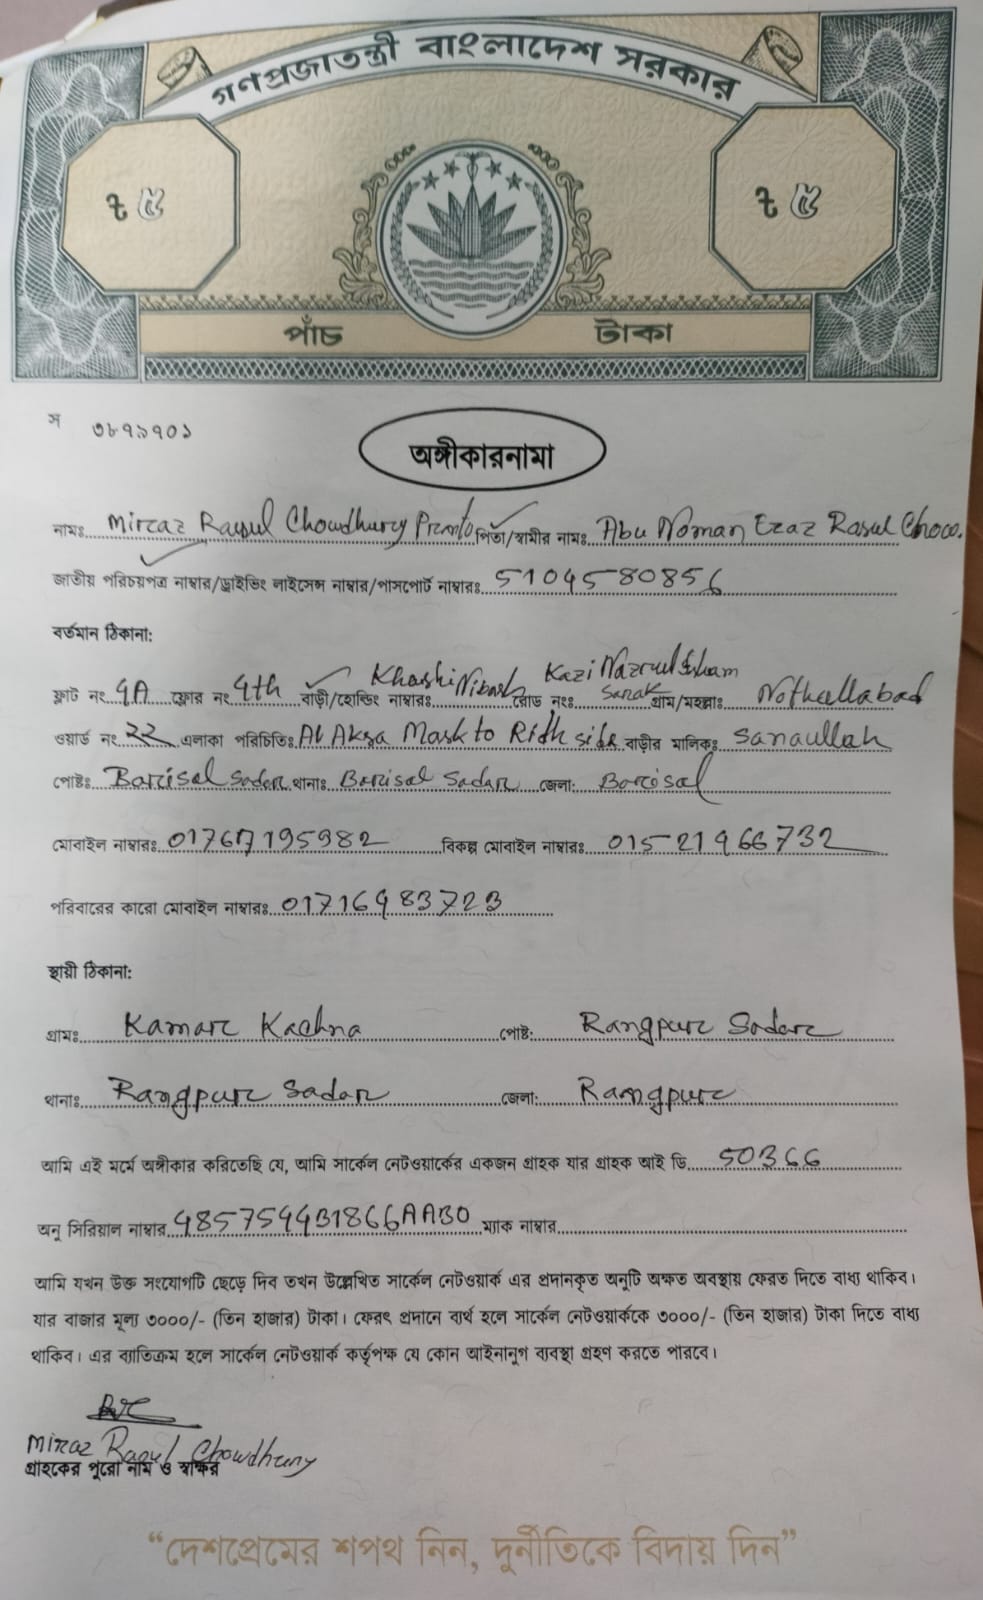 গণপ্রজাতন্ত্রী বাংলাদেশ সরকার
৳ ৫ ৳ ৫
পাঁচ টাকা
স ৩৮৭১৭০১
অঙ্গীকারনামা
নামঃ Mirzaz Rasul Chowdhury Pranto পিতা/স্বামীর নামঃ Abu Noman Ezaz Rasul Chow.
জাতীয় পরিচয়পত্র নাম্বার/ড্রাইভিং লাইসেন্স নাম্বার/পাসপোর্ট নাম্বারঃ 5104580856
বর্তমান ঠিকানা:
ফ্লাট নং 4A ফ্লোর নং 4th বাড়ী/হোল্ডিং নাম্বারঃ Khushi Nibash রোড নংঃ Kazi Nazrul Islam Sarak গ্রাম/মহল্লাঃ Nothullabad
ওয়ার্ড নং ২২ এলাকা পরিচিতিঃ Al Aksa Mask to side বাড়ীর মালিকঃ Sanaullah
পোষ্টঃ Barisal Sadar থানাঃ Barisal Sadar জেলা: Barisal
মোবাইল নাম্বারঃ বিকল্প মোবাইল নাম্বারঃ 01521466732
পরিবারের কারো মোবাইল নাম্বারঃ 01716483723
স্থায়ী ঠিকানা:
গ্রামঃ Kamar Kachna পোষ্ট: Rangpur Sadar
থানাঃ Rangpur Sadar জেলা: Rangpur
আমি এই মর্মে অঙ্গীকার করিতেছি যে, আমি সার্কেল নেটওয়ার্কের একজন গ্রাহক যার গ্রাহক আই ডি 50366
অনু সিরিয়াল নাম্বার 485754431866AAB0 ম্যাক নাম্বার
আমি যখন উক্ত সংযোগটি ছেড়ে দিব তখন উল্লেখিত সার্কেল নেটওয়ার্ক এর প্রদানকৃত অনুটি অক্ষত অবস্থায় ফেরত দিতে বাধ্য থাকিব।
যার বাজার মূল্য ৩০০০/- (তিন হাজার) টাকা। ফেরৎ প্রদানে ব্যর্থ হলে সার্কেল নেটওয়ার্ককে ৩০০০/- (তিন হাজার) টাকা দিতে বাধ্য
থাকিব। এর ব্যতিক্রম হলে সার্কেল নেটওয়ার্ক কর্তৃপক্ষ যে কোন আইনানুগ ব্যবস্থা গ্রহণ করতে পারবে।
Miraz Rasul Chowdhury
গ্রাহকের পুরো নাম ও স্বাক্ষর
“দেশপ্রেমের শপথ নিন, দুর্নীতিকে বিদায় দিন”